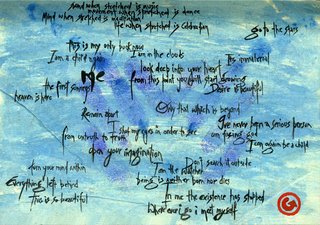 Mind when stretched is music
movement when stretched is dance
Mind when stretched is meditation
life when stretched is celebration
go to the stars
This is my only business now
I am a child again
I am in the clouds
This immaterial
look deep into your heart
Me
from this point you shall start growing
the first sunrays
Desire is beautiful
heaven is here
Only that which is beyond
Remain apart
I've never been a serious person
from untruth to truth
I shut my eyes in order to see
am facing god
open your imagination
I can again be a child
turn your mind within
Don't search it outside
I am the watcher
Everything left behind
being is neither born nor dies
This is so beautiful
In me the existence has stopped
Wherever I go I meet myself